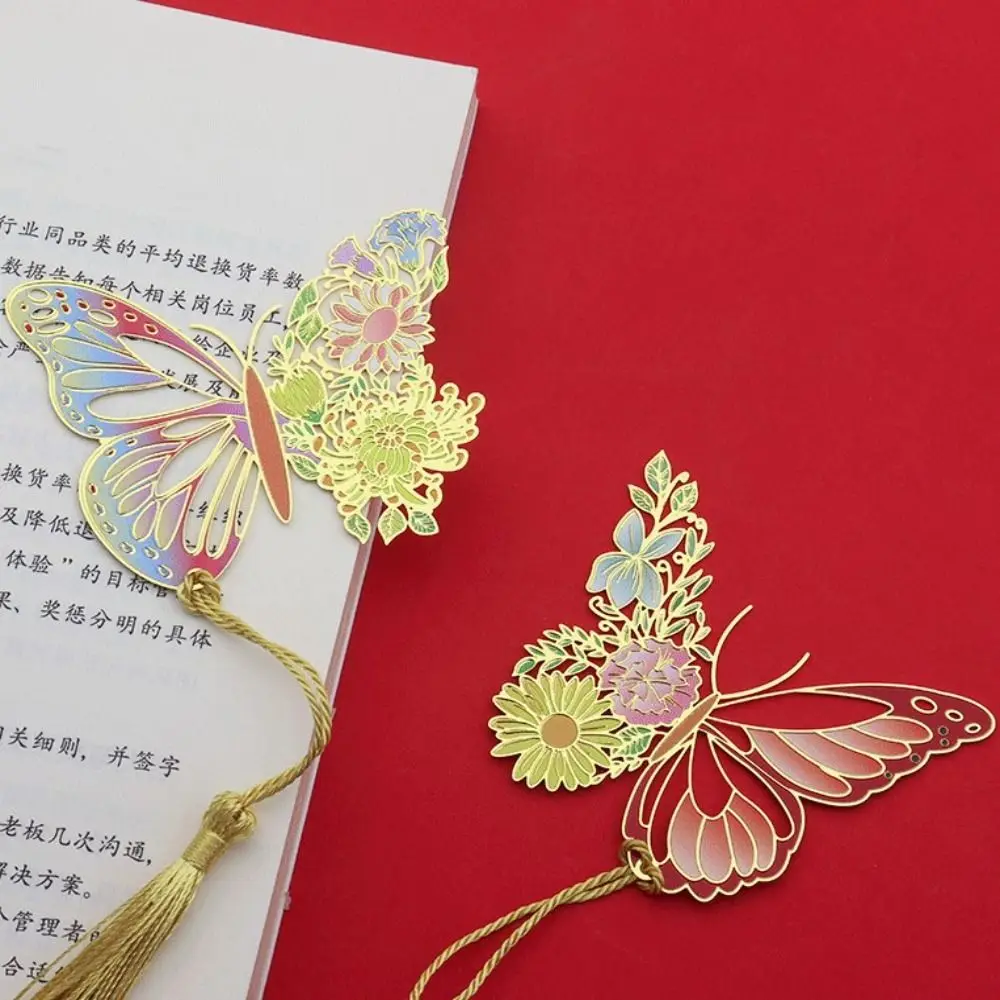 行业同品类的平均退换货率数
数据告知每个相关岗位员工,
给企业及
发展及
换货率
及降低退
体验”的目标
果、奖惩分明的具体
相关细则,并签字
老板几次沟通,
解决方案。
个管理者的
合适